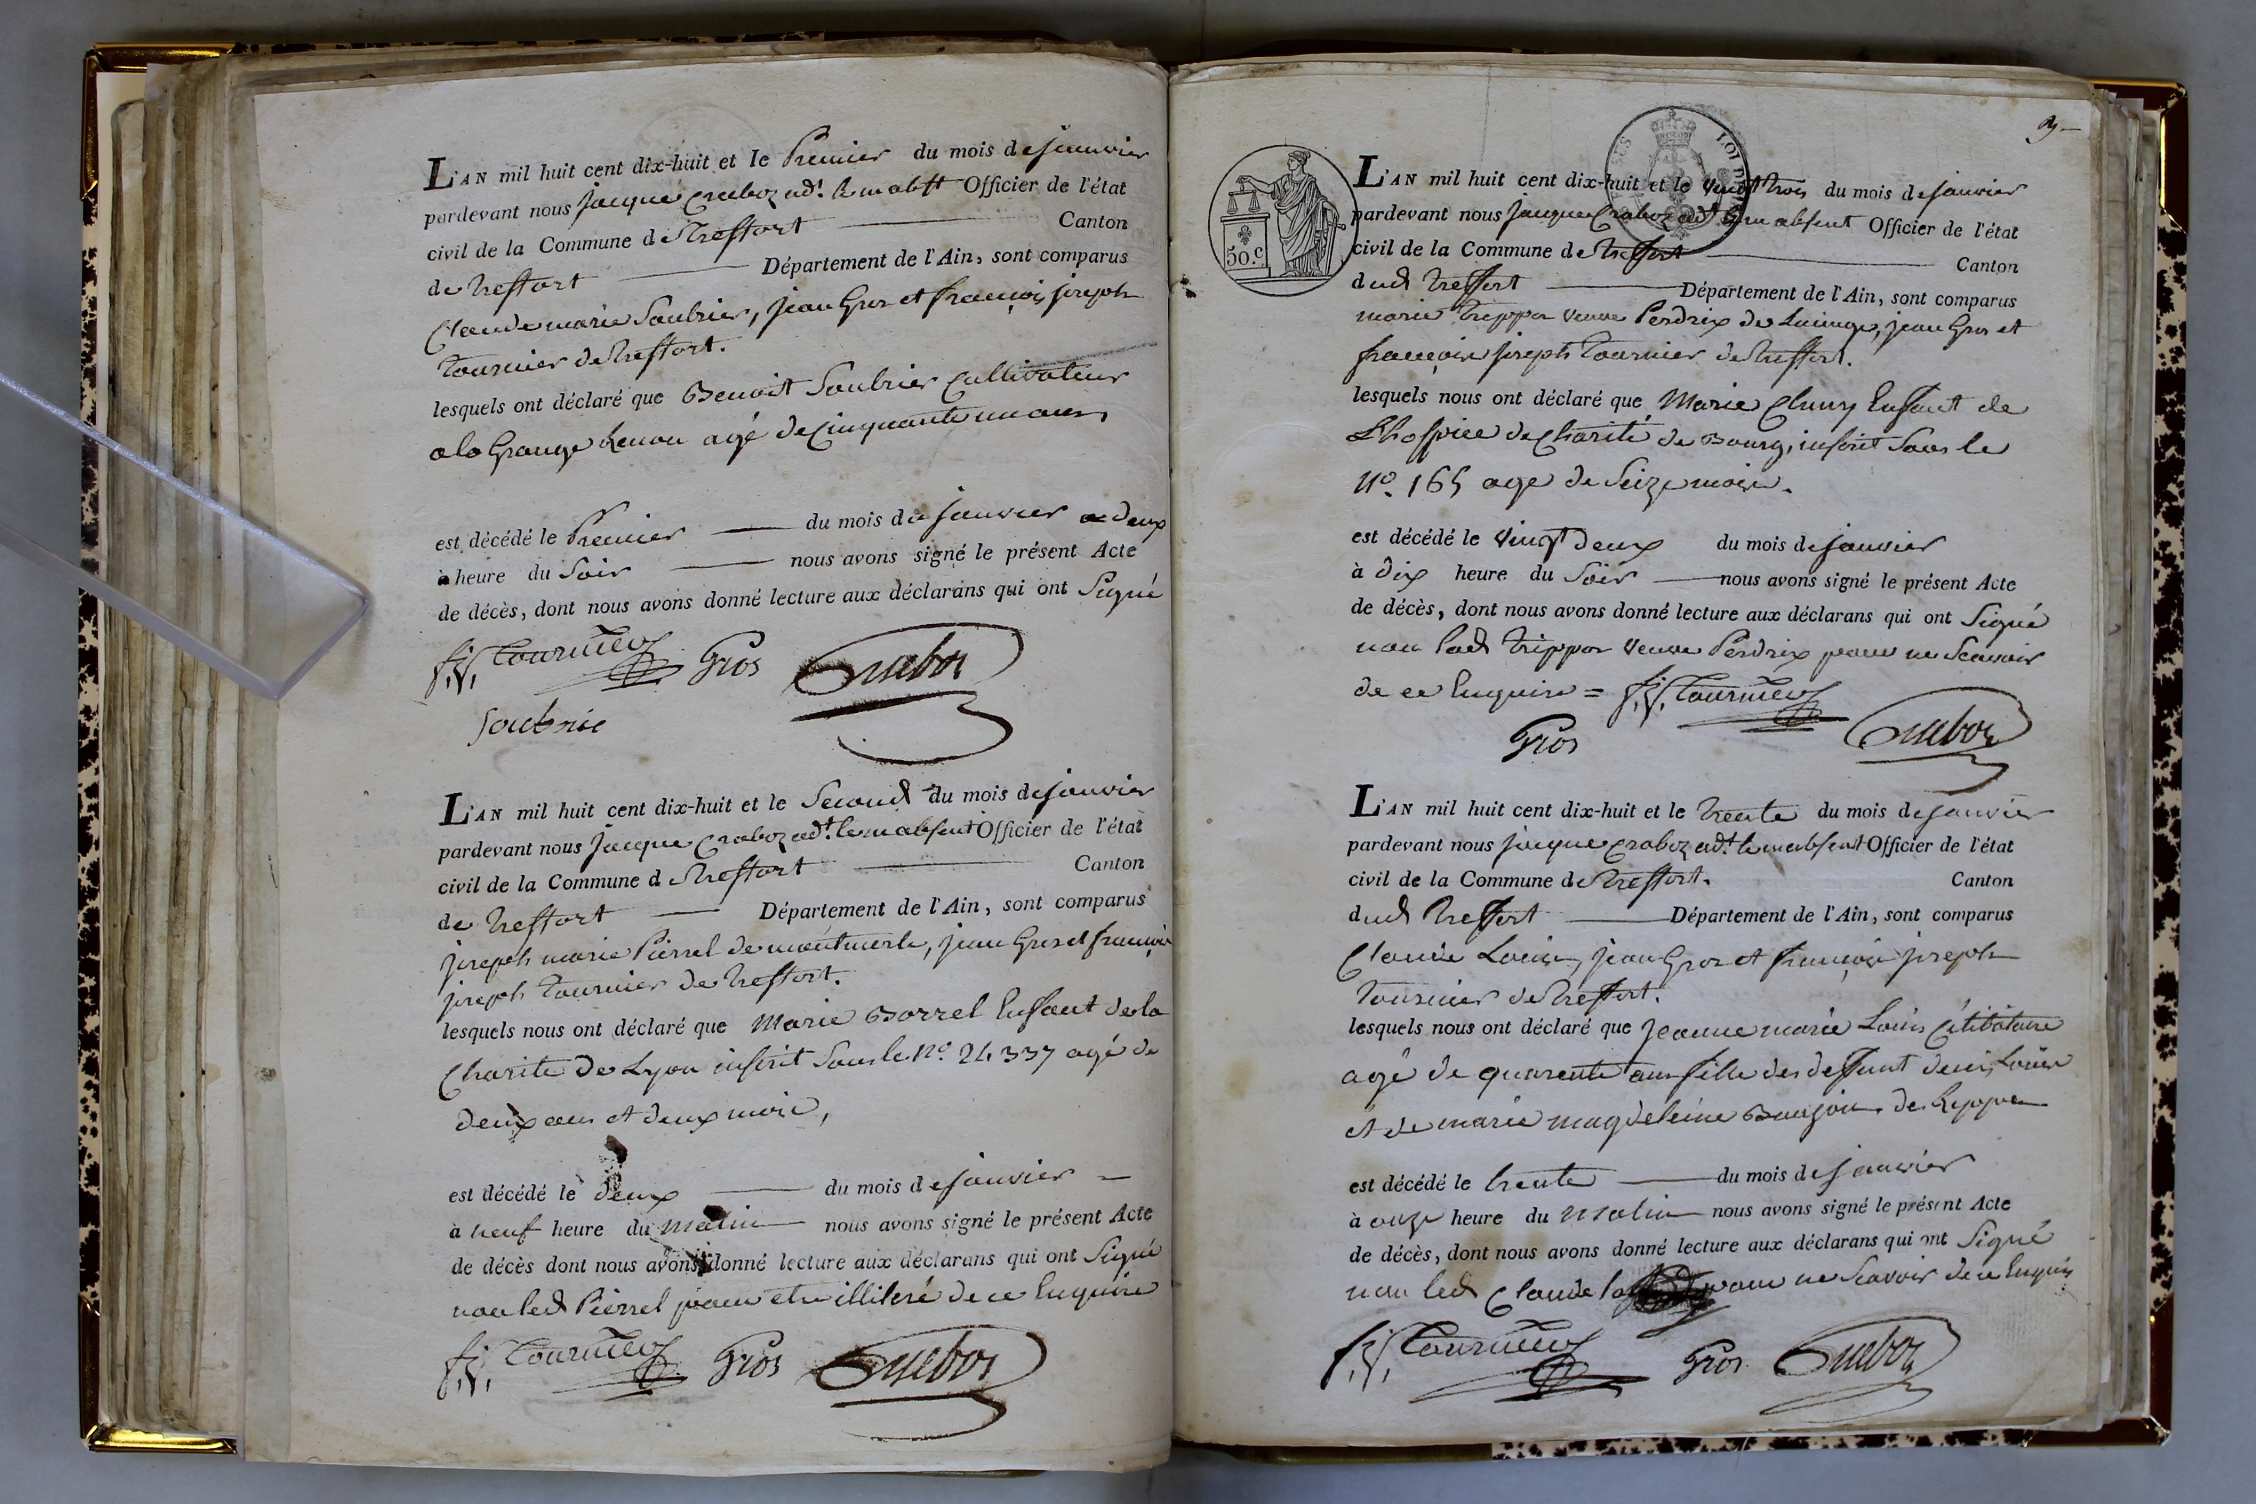 L'AN mil huit cent dix-huit et le Premier du mois de janvier
pardevant nous jacque Craboz adt. le m abst Officier de l'état
civil de la Commune de Treffort Canton
de Treffort Département de l'Ain, sont comparus
Claude marie Soubrier, jean Gros et françois joseph
Tournier de Treffort.
lesquels ont déclaré que Benoit Soubrier Cultivateur
a la Grange agé de Cinquante un ans,
est décédé le Premier du mois de janvier a deux
à heure du Soir nous avons signé le présent Acte
de décès, dont nous avons donné lecture aux déclarans qui ont Signé
f. j. Tournier Gros Craboz
Soubrie
L'AN mil huit cent dix-huit et le Second du mois de janvier
pardevant nous jacque Craboz adt. le m absent Officier de l'état
civil de la Commune d Treffort Canton
de Treffort Département de l'Ain, sont comparus
joseph marie Pierrel de montmerle, jean Gros et françois
joseph Tournier de Treffort.
lesquels nous ont déclaré que Marie Borrel Enfant de la
Charité de Lyon inscrit Sous le No. 24337 agé de
deux ans et deux mois,
est décédé le deux du mois de janvier
à neuf heure du Matin nous avons signé le présent Acte
de décès dont nous avons donné lecture aux déclarans qui ont Signé
non led Pierrel pour etre illiteré de ce Enquire
f. j. Tournier Gros Craboz
50.c
LOI DE
L'AN mil huit cent dix-huit et le Vingt trois du mois de janvier
pardevant nous jacque Craboz adt le m absent Officier de l'état
civil de la Commune de Treffort Canton
dud Treffort Département de l'Ain, sont comparus
marie Trippoz Veuve Perdrix de jean Gros et
françois joseph Tournier de Treffort.
lesquels nous ont déclaré que Marie Cluny Enfant de
L'hospice de Charité de Bourg, inscrit Sous le
No. 165 age de Seize mois.
est décédé le Vingt deux du mois de janvier
à dix heure du Soir nous avons signé le présent Acte
de décès, dont nous avons donné lecture aux déclarans qui ont Signé
non lad Trippoz Veuve Perdrix pour ne Scavoir
de ce Enquire = f. j. Tournier
Gros Craboz
L'AN mil huit cent dix-huit et le Trente du mois de janvier
pardevant nous jacque Craboz adt. le m absent Officier de l'état
civil de la Commune de Treffort. Canton
dud Treffort Département de l'Ain, sont comparus
Claude Louis, jean Gros et françois joseph
Tournier de Treffort.
lesquels nous ont déclaré que Jeanne marie Louis Célibataire
agé de quarente ans fille des deffunt denis Louis
et de marie magdeleine Boujon de
est décédé le trente du mois de janvier
à onze heure du Matin nous avons signé le présent Acte
de décès, dont nous avons donné lecture aux déclarans qui ont Signé
non led Claude pour ne Scavoir de ce Enquis
f. j. Tournier Gros Craboz